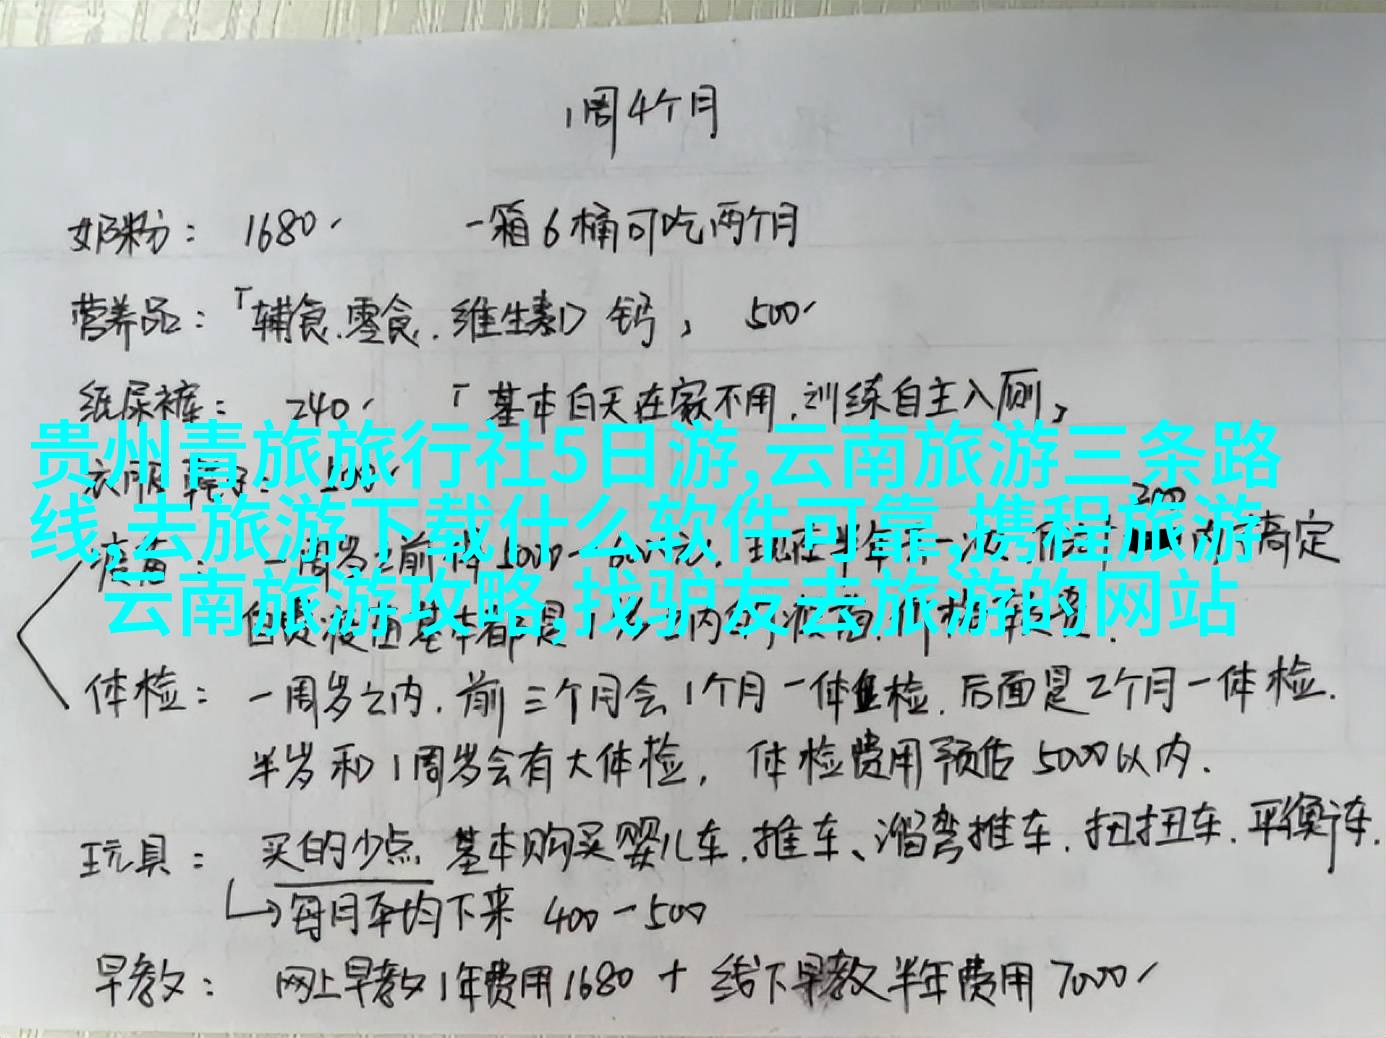 1周4个月
奶粉： 1680 一箱6桶可吃两个月
营养品：「辅食.零食.维生素D 钙， 500
纸尿裤： 240 「基本白天在家不用.训练自主入厕，
贵州青旅旅行社5日游,云南旅游三条路
衣服鞋子：
线,去旅游下载什么软件可靠,携程旅游
疫苗： 一周岁之前 搞定
云南旅游攻略,找驴友去旅游的网站
体检： 一周岁之内.前三个月会1个月一体检.后面是2个月一体检.
半岁和1周岁会有大体检， 体检费用预估5000以内.
玩具： 买的少点 基本购买婴儿车.推车、溜弯推车.扭扭车.平衡车.
每月平均下来 400-500
早教： 网上早教1年费用1680 + 线下早教半年费用7000